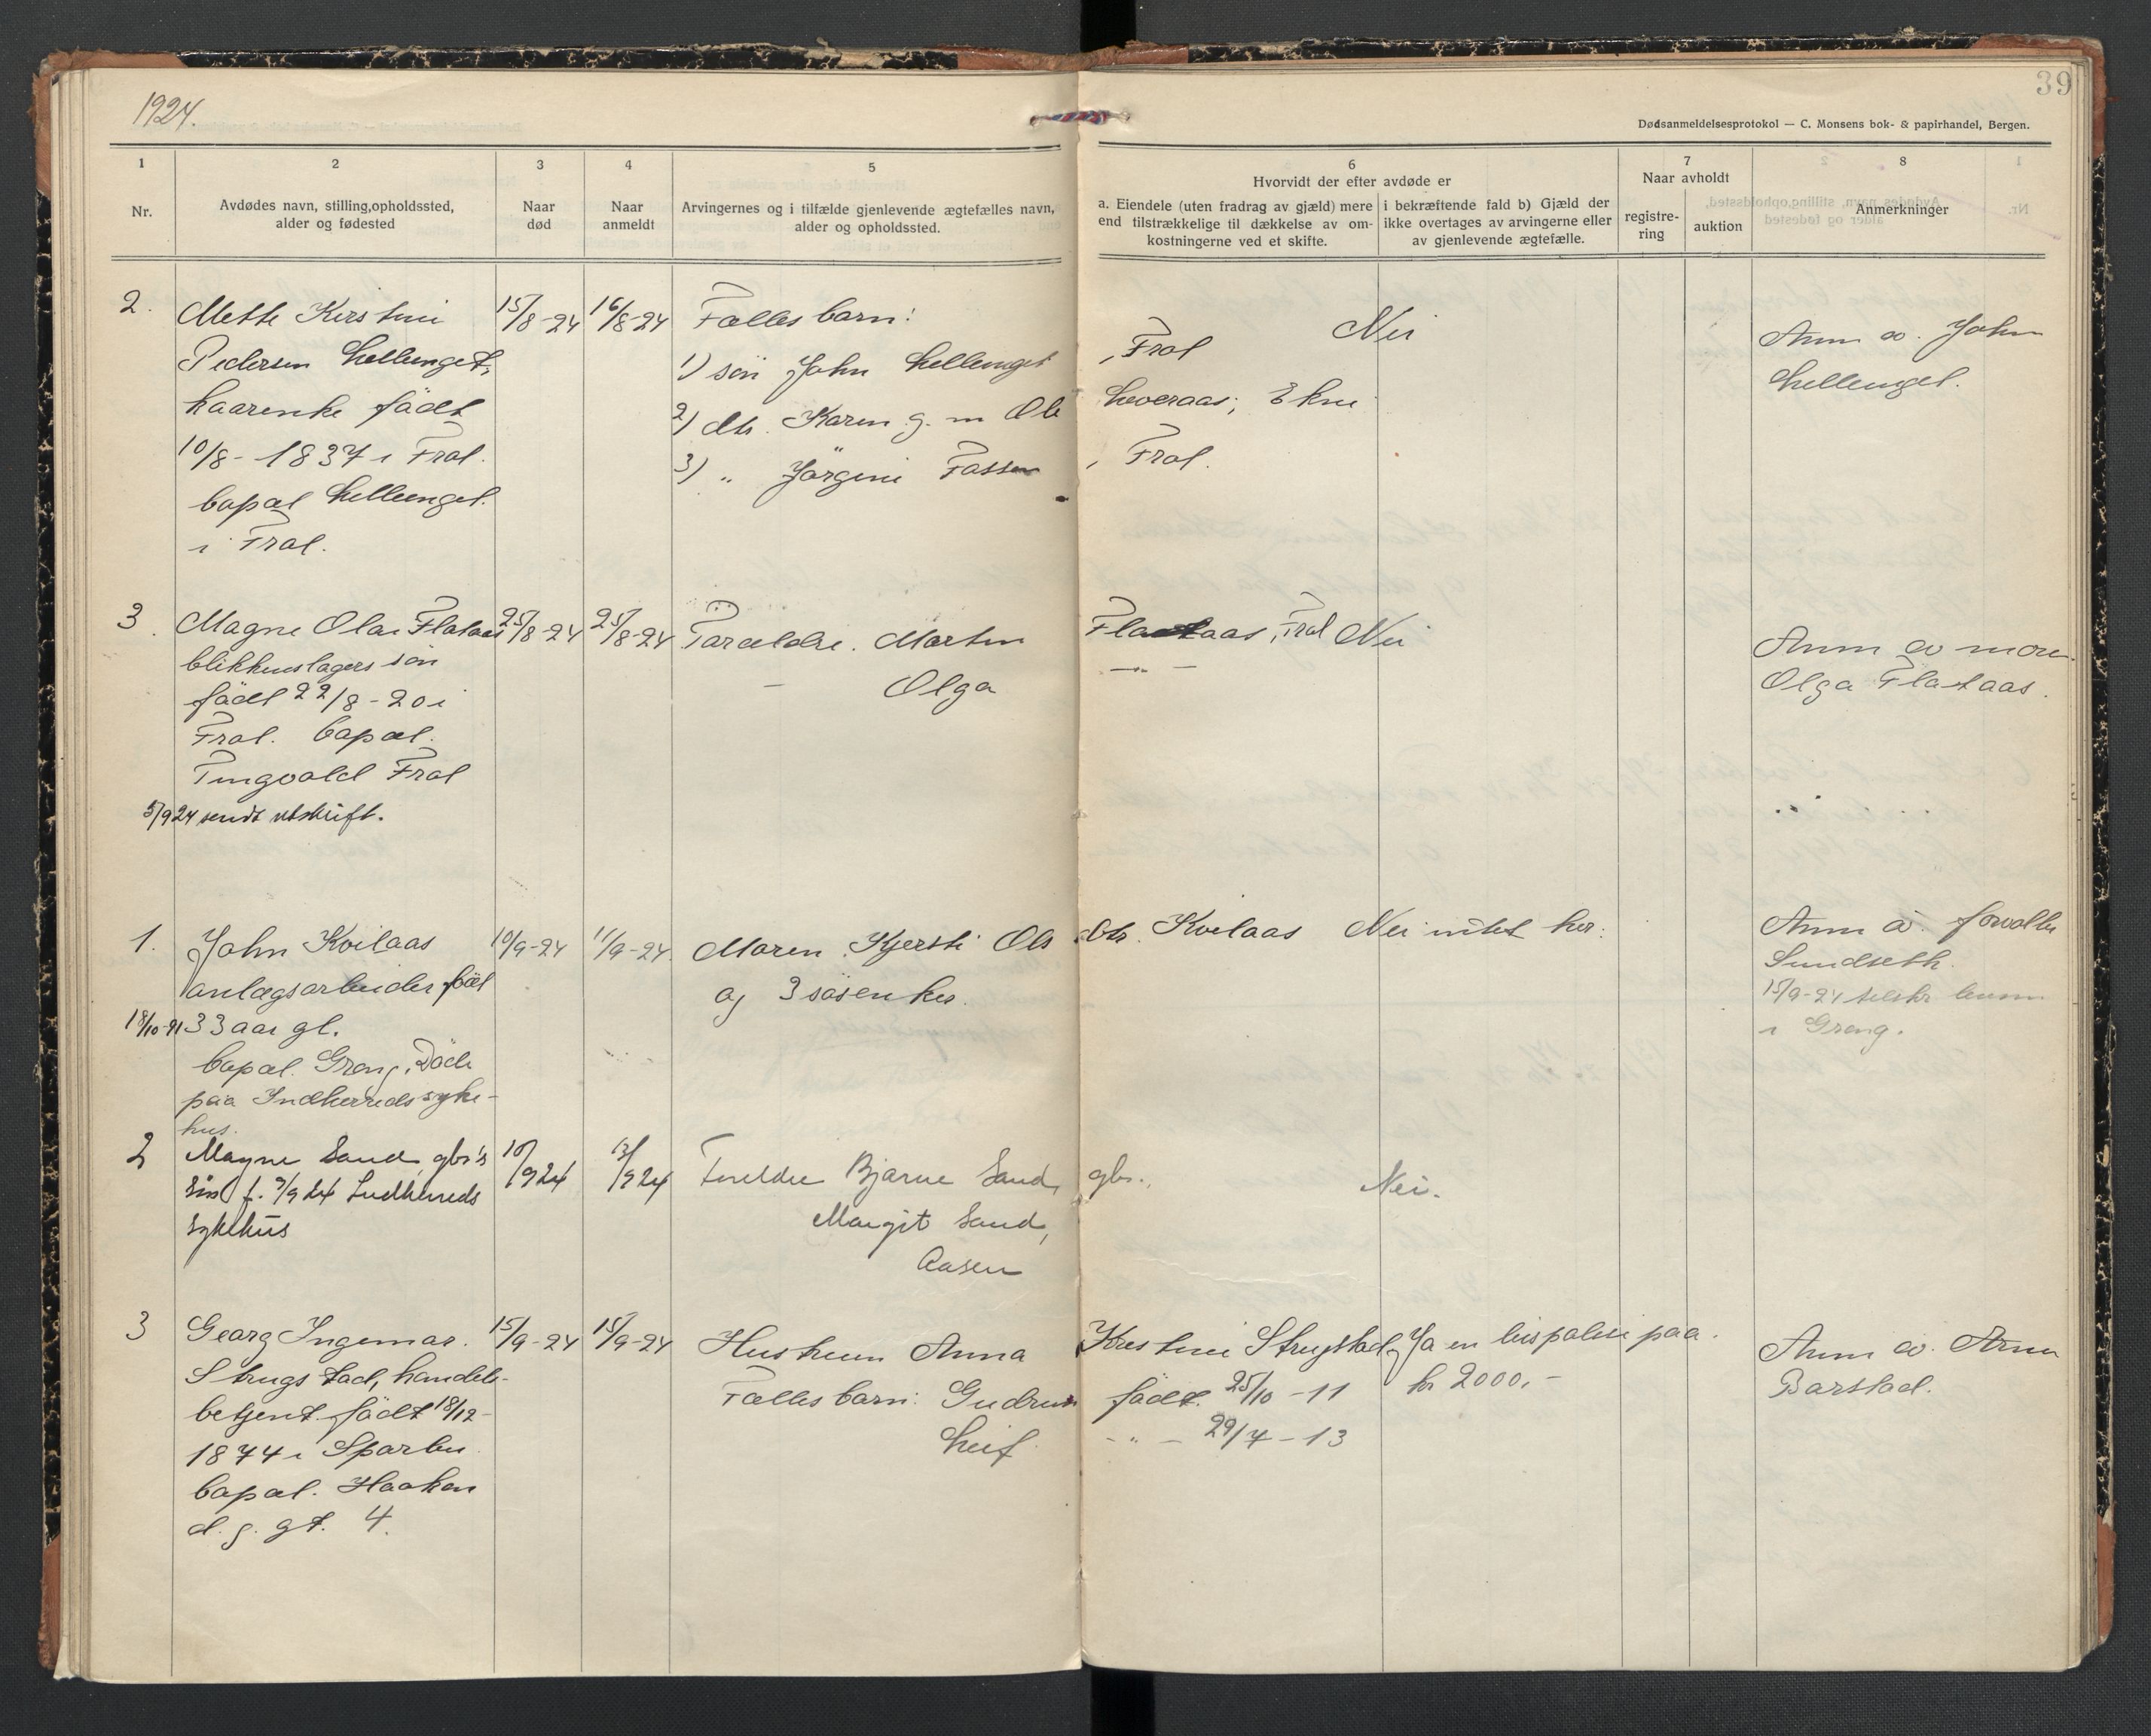 1924.
39
Dødsanmeldelsesprotokol — C. Monsens bok- & papirhandel, Bergen.
1
Nr.
2
Avdødes navn, stilling, opholdssted,
alder og fødested
3
Naar
død
4
Naar
anmeldt
5
Arvingernes og i tilfælde gjenlevende ægtefælles navn,
alder og opholdssted.
6
Hvorvidt der efter avdøde er
a. Eiendele (uten fradrag av gjæld) mere
end tilstrækkelige til dækkelse av om-
kostningerne ved et skifte.
i bekræftende fald b) Gjæld der
ikke overtages av arvingerne eller
av gjenlevende ægtefælle.
7
Naar avholdt
registre-
ring
auktion
8
Anmerkninger
2.
Mette Kirstine
Pedersen Hellenget,
kaarenke födt
10/8 - 1837 i Frol.
bopæl Hellenget.
i Frol.
15/8-24
16/8-24
Fælles barn:
1) sön John Hellenget, Frol
2) dtr. Karen g. m Ole Loveraas, Ekne
3) " Jörgine Fossen, Frol.
Nei
Anm av. John
Hellenget.
3.
Magne Olav Flataas
blikkenslagers sön
födt 22/8 - 20 i
Frol. bopæl.
Tingvold Frol
5/9 24 sendt utskrift.
25/8-24
25/8-24
Forældre. Morten Flataas, Frol
- Olga - -
Nei
Anm av moren
Olga Flataas.
1.
John Kvilaas
anlægsarbeider föd
18/10-91 33 aar gl.
bopæl. Grong. Döde
paa Indherreds syke-
hus.
10/9-24
11/9-24.
Moren Kjersti Ols dtr. Kvilaas
og 3 söskenher.
Nei intet her.
Anm av. forvalter
Sundseth.
15/9-24 tilskr. lensm
i Grong.
2
Magne Sand, gbr's
sön f. 9/9 24 Indherreds
sykehus
10/9 24
13/9 24
Foreldre Bjarne Sand, gbr.,
Margit Sand,
Aasen
Nei.
3
Georg Ingemar.
Strugstad, handels-
betjent. födt 18/12-
1874 i Sparbu
bopæl. Haakon
d. g. gt. 4.
15/9-24
15/9-24
Hustruen Anna Kristine Strugstad
Fælles barn: Gudrun födt. 25/10-11
Leif - " - 29/7-13
Ja en livspolise paa.
kr 2000,-
Anm av. Arne
Barstad.